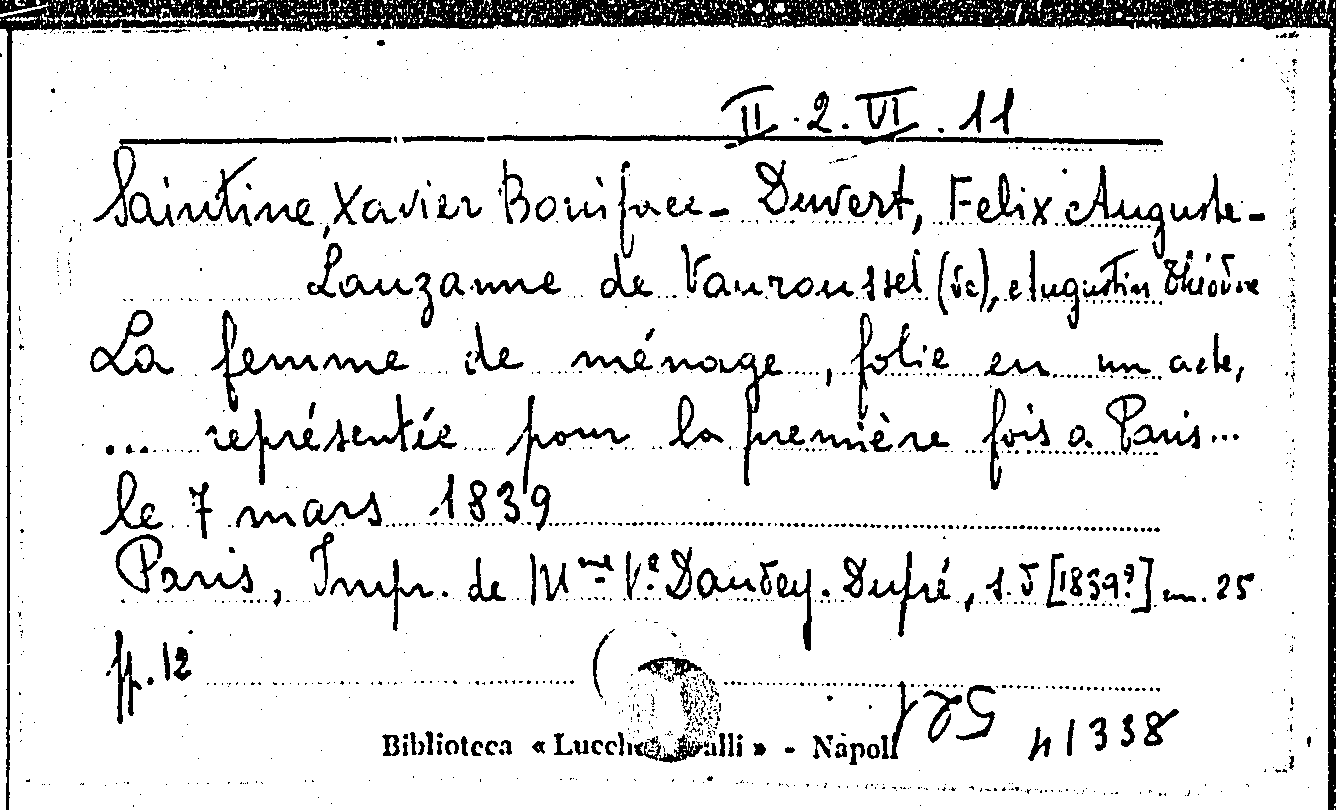 II.2.VI.11
Saintine, Xavier Boniface - Duvert, Felix Auguste -
Lauzanne de Vauroussel (de), Augustin Théodore
La femme de ménage, folie en un acte,
... représentée pour la première fois a Paris...
le 7 mars 1839
Paris, Impr. de Mme Ve Dondey-Dupré, s.d [1839?] cm. 25
pp. 12
Biblioteca « Lucch alli » - Napoli
41338